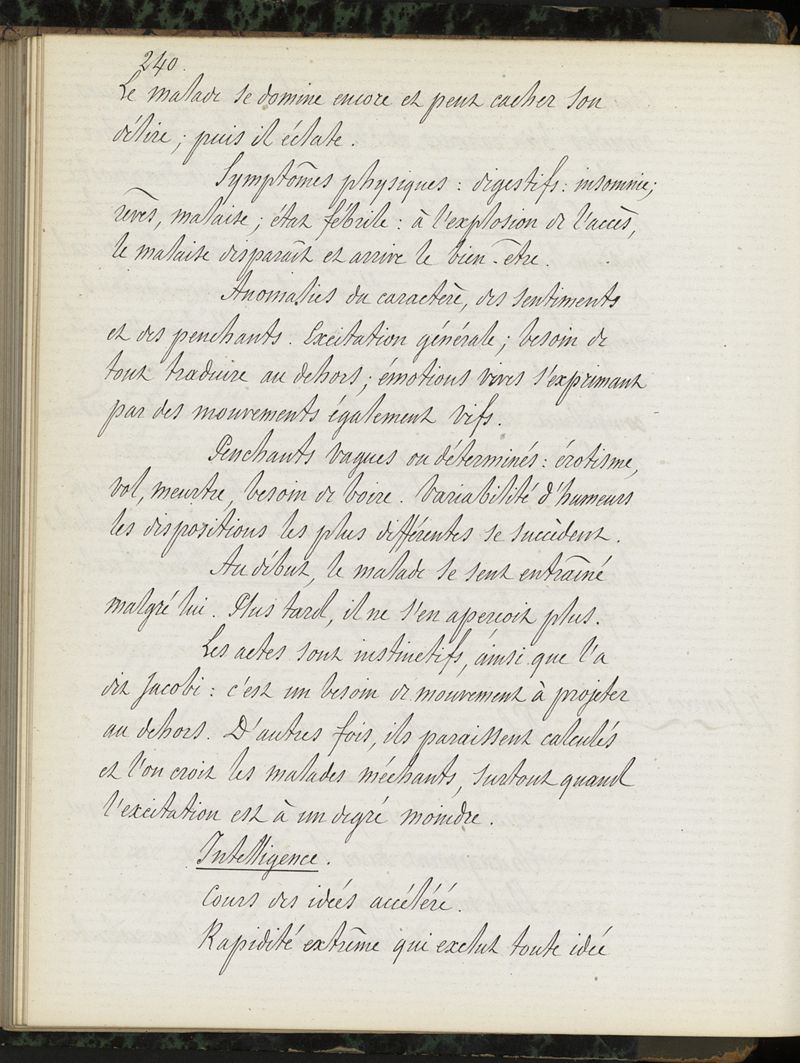 240.
Le malade se domine encore et peut cacher son
délire ; puis il éclate.
Symptômes physiques : digestifs : insomnie ;
rêves, malaise ; état fébrile : à l'explosion de l'accès,
le malaise disparaît et arrive le bien-être.
Anomalies du caractère, des sentiments
et des penchants. Excitation générale ; besoin de
tout traduire au dehors ; émotions vives s'exprimant
par des mouvements également vifs.
Penchants vagues ou déterminés : érotisme,
vol, meurtre, besoin de boire. Variabilité d'humeurs
les dispositions les plus différentes se succèdent.
Au début, le malade se sent entraîné
malgré lui. Plus tard, il ne s'en aperçoit plus.
Les actes sont instinctifs, ainsi que l'a
dit Jacobi : c'est un besoin de mouvement à projeter
au dehors. D'autres fois, ils paraissent calculés
et l'on croit les malades méchants, surtout quand
l'excitation est à un degré moindre.
Intelligence.
Cours des idées accéléré.
Rapidité extrême qui exclut toute idée